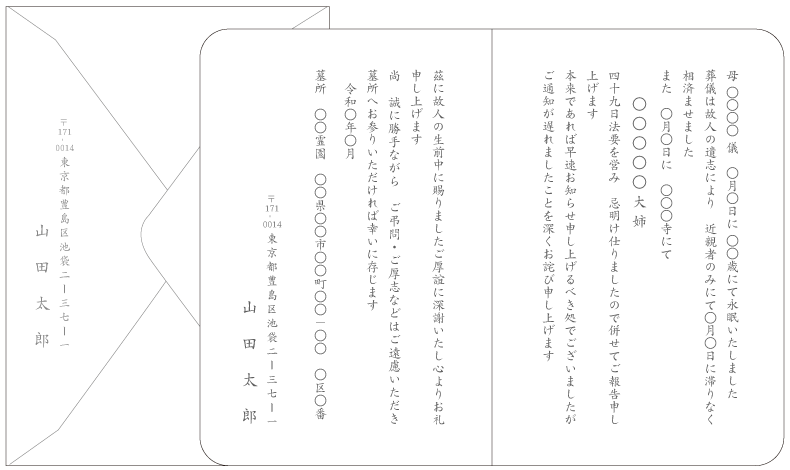 母　〇〇〇〇 儀　〇月〇日に 〇〇歳にて永眠いたしました
葬儀は故人の遺志により　近親者のみにて〇月〇日に滞りなく
相済ませました
また　〇月〇日に　〇〇〇寺にて
〇〇〇〇〇〇 大姉
四十九日法要を営み　忌明け仕りましたので併せてご報告申し
上げます
本来であれば早速お知らせ申し上げるべき処でございましたが
ご通知が遅れましたことを深くお詫び申し上げます
茲に故人の生前中に賜りましたご厚誼に深謝いたし心よりお礼
申し上げます
尚　誠に勝手ながら　ご弔問・ご厚志などはご遠慮いただき
墓所へお参りいただければ幸いに存じます
令和〇年〇月
墓所　〇〇霊園　〇〇県〇〇市〇〇町〇〇－〇〇　〇区〇番
〒171-0014 東京都豊島区池袋二ー三七ー一
山田太郎
〒171-0014 東京都豊島区池袋二ー三七ー一
山田太郎